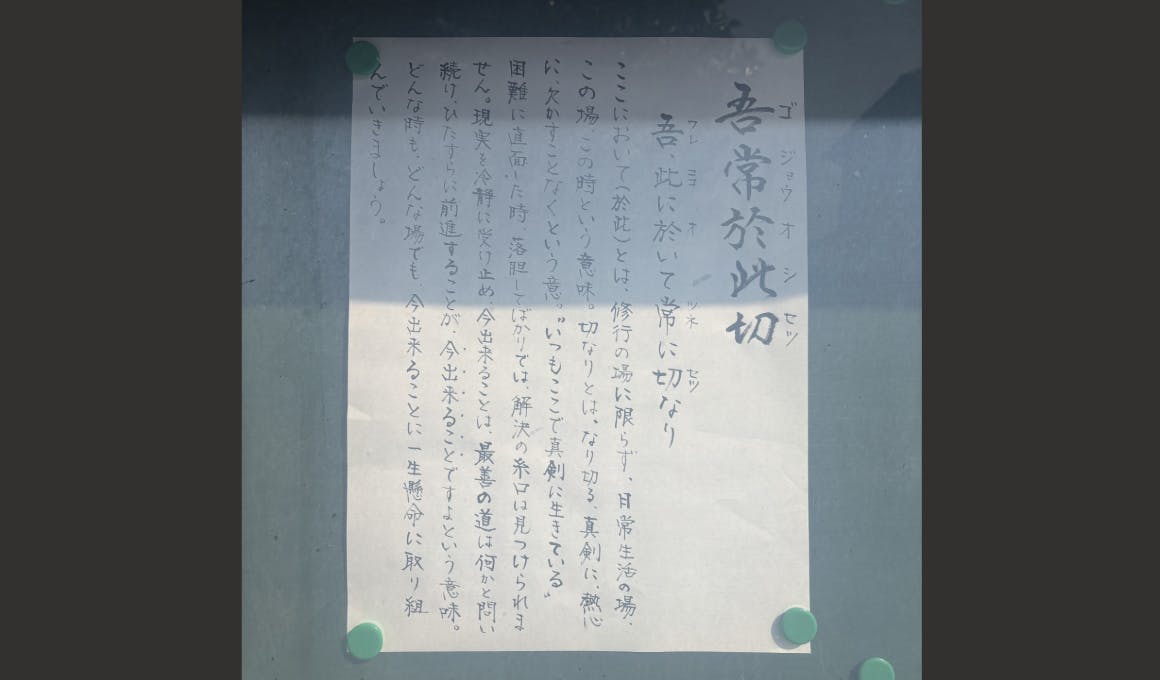 吾常於此切
ゴ ジョウ オ シ セツ
吾、此に於いて常に切なり
ワレ ココ オ ツネ セツ
ここにおいて(於此)とは、修行の場に限らず、日常生活の場、
この場、この時という意味。切なりとは、なり切る、真剣に、熱心
に、欠かすことなくという意。"いつもここで真剣に生きている"
困難に直面した時、落胆してばかりでは、解決の糸口は見つけられま
せん。現実を冷静に受け止め、今出来ることは、最善の道は何かと問い
続け、ひたすらに前進することが、今出来ることですよという意味。
どんな時も、どんな場でも、今出来ることに一生懸命に取り組
んでいきましょう。